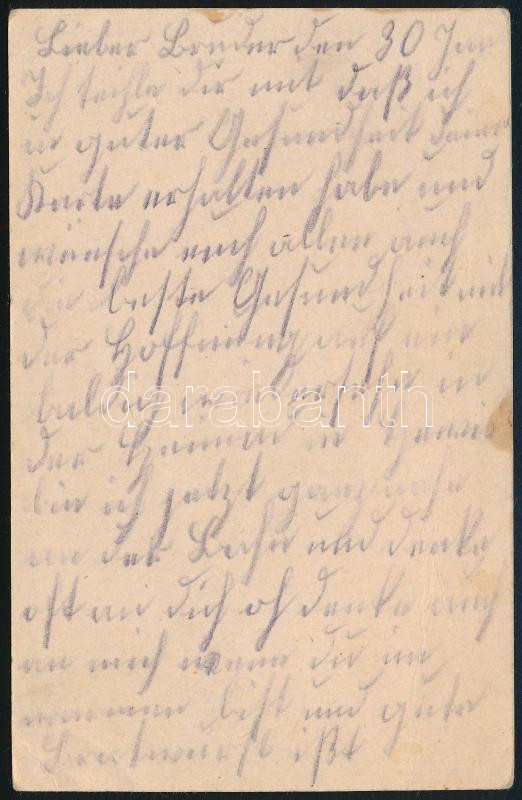 Lieber Bruder den 30 Jan
Ich teihle dir mit daß ich
in guter Gesundheit deine
Karte erhalten habe und
wünsche euch allen auch
die beste Gesundheit mit
der Hoffnung auf ein
darabanth
in
der Heimat
bin ich jetzt ganz nahe
an der Bahn und denke
oft an dich oh denke auch
an mich wenn du im
warmen bist und gute
Bratwurst ißt